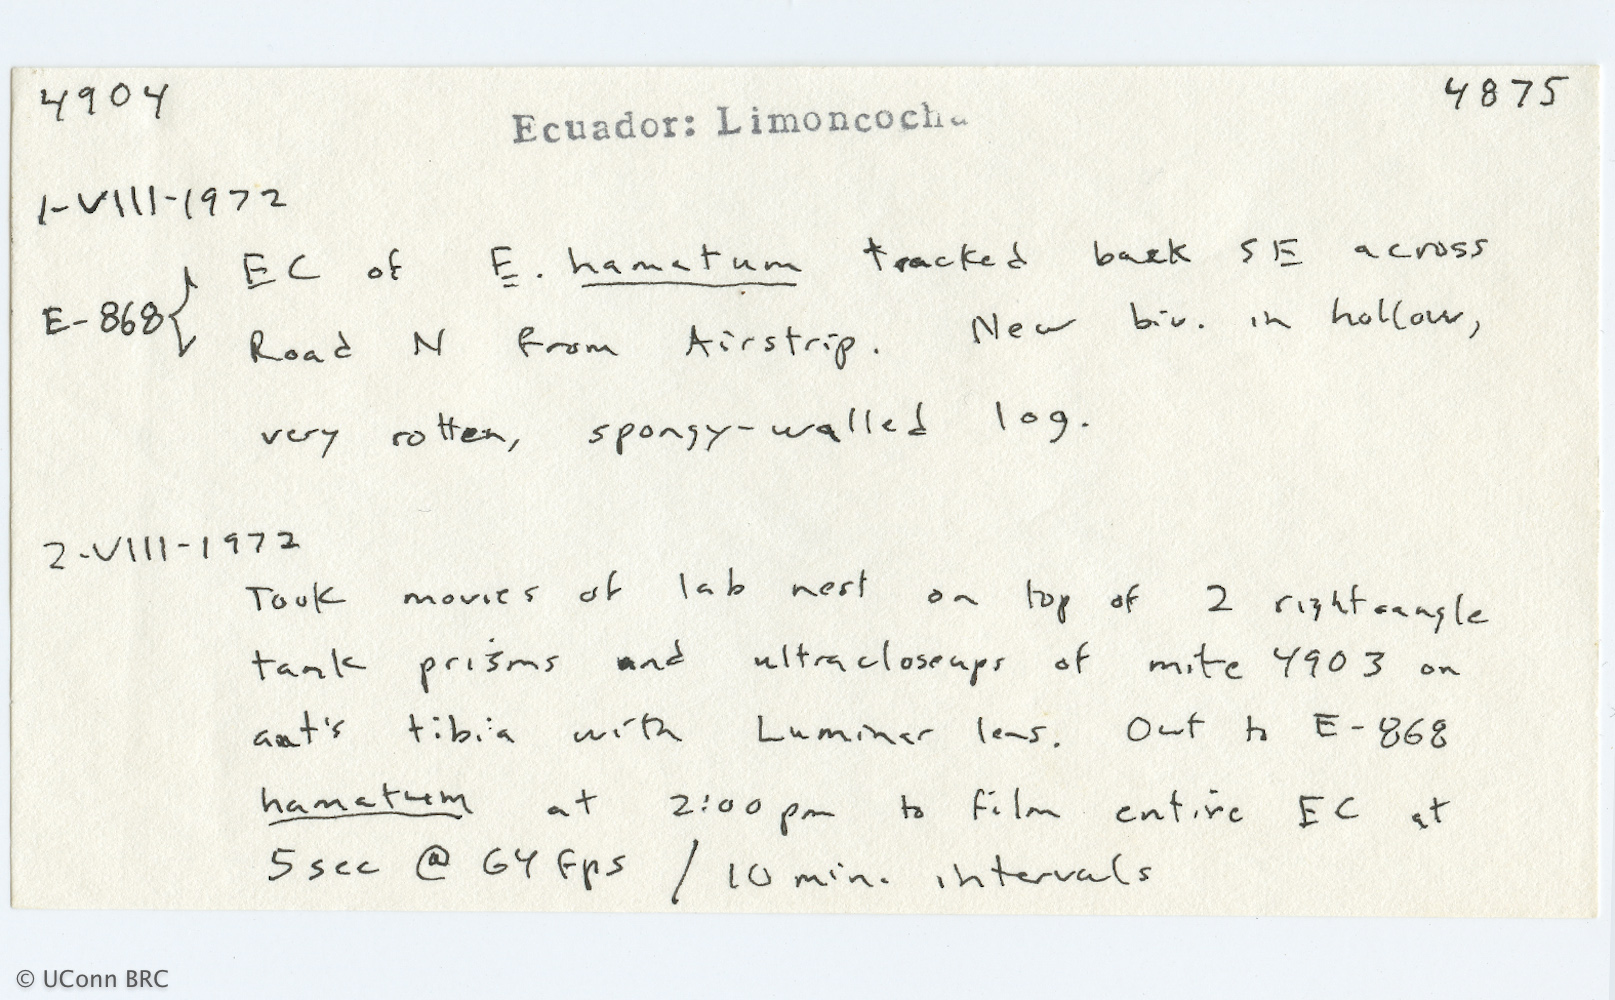 4904 4875
Ecuador: Limoncocha
1-VIII-1972
EC of E. hamatum tracked back SE across
E-868 { Road N from Airstrip. New biv. in hollow,
very rotten, spongy-walled log.
2-VIII-1972
Took movies of lab nest on top of 2 right angle
tank prisms and ultracloseups of mite 4903 on
ant's tibia with Luminar lens. Out to E-868
hamatum at 2:00 pm to film entire EC at
5 sec @ 64 fps / 10 min. intervals
© UConn BRC